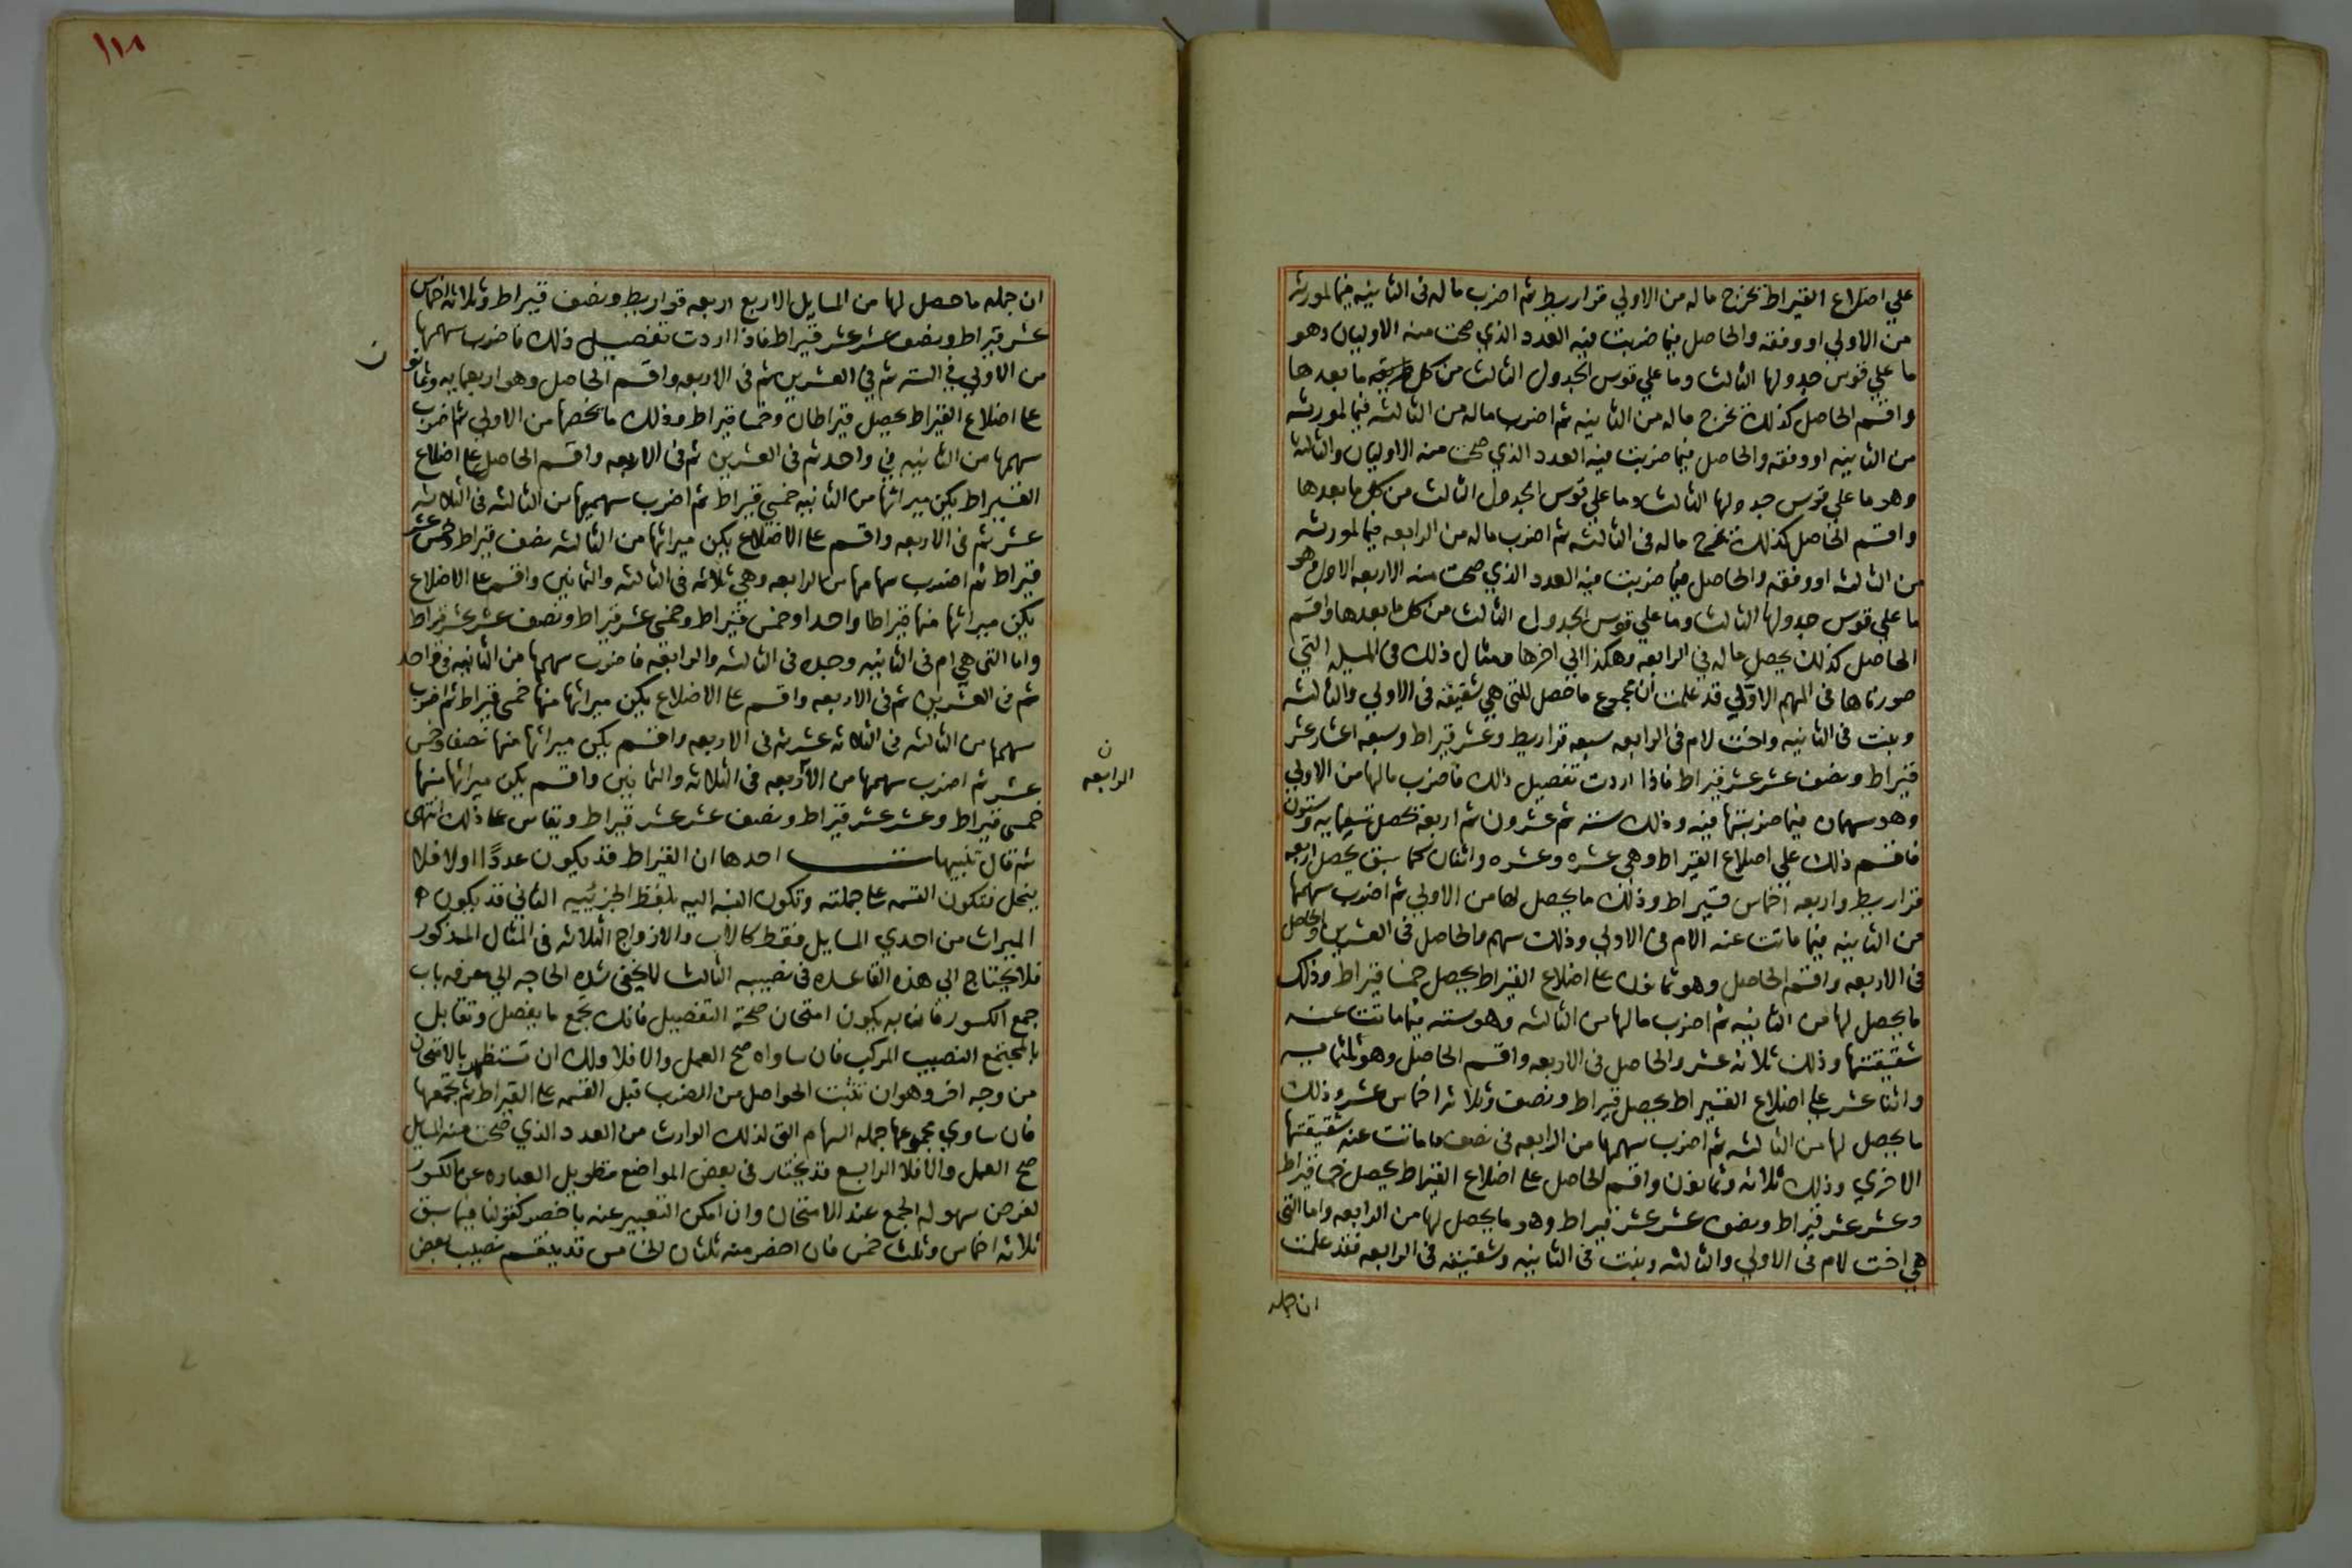 علي اضلاع القيراط تخرج ماله من الاولي قراريط ثم اضرب ماله في الثانيه فيما لمورثه
من الاولي او وفقه والحاصل فيما ضربت فيه العدد الذي صحت منه الاوليان وهو
ما علي قوس جدولها الثالث وما علي قوس الجدول الثالث من كل ما بعدها
واقسم الحاصل كذلك تخرج ماله من الثانيه ثم اضرب ماله من الثالثه فيما لمورثه
من الثانيه او وفقه والحاصل فيما ضربت فيه العدد الذي صحت منه الاوليان والثالثة
وهو ما علي قوس جدولها الثالث وما علي قوس الجدول الثالث من كل ما بعدها
واقسم الحاصل كذلك تخرج ماله في الثالثه ثم اضرب ماله من الرابعه فيما لمورثه
من الثالثه او وفقه والحاصل فيما ضربت فيه العدد الذي صحت منه الاربعه الاول وهو
ما علي قوس جدولها الثالث وما علي قوس الجدول الثالث من كل ما بعدها واقسم
الحاصل كذلك يحصل ماله في الرابعه وهكذا الي اخرها ومثال ذلك في المسيله التي
صورناها في المهم الاولي قد علمت ان مجموع ما حصل للتي هي شقيقه في الاولي والثالثه
وبنت في الثانيه واخت لام في الرابعه سبعه قراريط وعشر قيراط وسبعه اعشار عشر
قيراط ونصف عشر عشر قيراط فاذا اردت تفصيل ذلك فاضرب مالها من الاولي
وهو سهمان فيما ضربتها فيه وذلك سته ثم عشرون ثم اربعه تحصل تسعمايه وستون
فاقسم ذلك علي اضلاع القيراط وهي عشره وعشره واثنان كما سبق يحصل اربعه
قراريط واربعه اخماس قيراط وذلك ما يحصل لها من الاولي ثم اضرب سهمها
من الثانيه فيما ماتت عنه الام في الاولي وذلك سهم والحاصل في العشرين والحاصل
في الاربعه واقسم الحاصل وهو ثمانون علي اضلاع القيراط يحصل خمسا قيراط وذلك
ما يحصل لها من الثانيه ثم اضرب مالها من الثالثه وهو سته فيما ماتت عنه
شقيقتها وذلك ثلاثه عشر والحاصل في الاربعه واقسم الحاصل وهو ثلثمايه
واثنا عشر علي اضلاع القيراط يحصل قيراط ونصف وثلاثه اخماس عشر وذلك
ما يحصل لها من الثالثه ثم اضرب سهمها من الرابعه في نصف ما ماتت عنه شقيقتها
الاخري وذلك ثلاثه وثمانون واقسم الحاصل علي اضلاع القيراط يحصل خمسا قيراط
وعشر عشر قيراط ونصف عشر عشر قيراط وهو ما يحصل لها من الرابعه واما التي
هي اخت لام في الاولي والثالثه وبنت في الثانيه وشقيقه في الرابعه فقد علمت
ان جمله
١١٨
ان جمله ما حصل لها من المسايل الاربع اربعه قراريط ونصف قيراط وثلاثه اخماس
عشر قيراط ونصف عشر عشر قيراط فاذا اردت تفصيل ذلك فاضرب سهمها
من الاولي في السته ثم في العشرين ثم في الاربعه واقسم الحاصل وهو اربعمايه وثمانون
علي اضلاع القيراط يحصل قيراطان وخمسا قيراط وذلك ما يخصها من الاولي ثم اضرب
سهمها من الثانيه في واحد ثم في العشرين ثم في الاربعه واقسم الحاصل علي اضلاع
القيراط يكن ميراثها من الثانيه خمسي قيراط ثم اضرب سهميها من الثالثه في الثلاثه
عشر ثم في الاربعه واقسم علي الاضلاع يكن ميراثها من الثالثه نصف قيراط وخمس عشر
قيراط ثم اضرب سهامها من الرابعه وهي ثلاثه في الثالثه والثمانين واقسم علي الاضلاع
يكن ميراثها منها قيراطا واحدا وخمس قيراط وخمسي عشر قيراط ونصف عشر عشر قيراط
واما التي هي ام في الثانيه وجده في الثالثه والرابعه فاضرب سهمها من الثانيه في واحد
ثم في العشرين ثم في الاربعه واقسم علي الاضلاع يكن ميراثها منها خمسي قيراط ثم اضرب
سهمها من الثالثه في الثلاثه عشر ثم في الاربعه واقسم يكن ميراثها منها نصفا وخمس
عشر ثم اضرب سهمها من الاربعه في الثلاثه والثمانين واقسم يكن ميراثها منها
خمسي قيراط وعشر عشر قيراط ونصف عشر عشر قيراط ويقاس علي ذلك انتهى
ثم قال تنبيهات احدها ان القيراط قد يكون عددًا اولا فلا
ينحل فتكون القسمه علي جملته وتكون النسبه اليه بلفظ الجزئيه الثاني قد يكون
الميراث من احدي المسايل فقط كالاب والازواج الثلاثه في المثال المذكور
فلا يحتاج الي هذه القاعده في نصيبه الثالث لا يخفى شده الحاجه الي معرفه باب
جمع الكسور فان به يكون امتحان صحة التفصيل فانك تجمع ما يفصل وتقابل
بالمجتمع النصيب المركب فان ساواه صح العمل والا فلا ولك ان تستظهر بالامتحان
من وجه اخر وهو ان تثبت الحواصل من الضرب قبل القسمه علي القيراط ثم تجمعها
فان ساوي مجموعها جمله السهام التي لذلك الوارث من العدد الذي صحت منه المسايل
صح العمل والا فلا الرابع قد يختار في بعض المواضع تطويل العباره عن الكسور
لغرض سهوله الجمع عند الامتحان وان امكن التعبير عنه باخصر كقولنا فيما سبق
ثلاثه اخماس وثلث خمس فان اخصر منه ثلثان الخامس قد ينقسم نصيب بعض
ن
ن
الرابعه